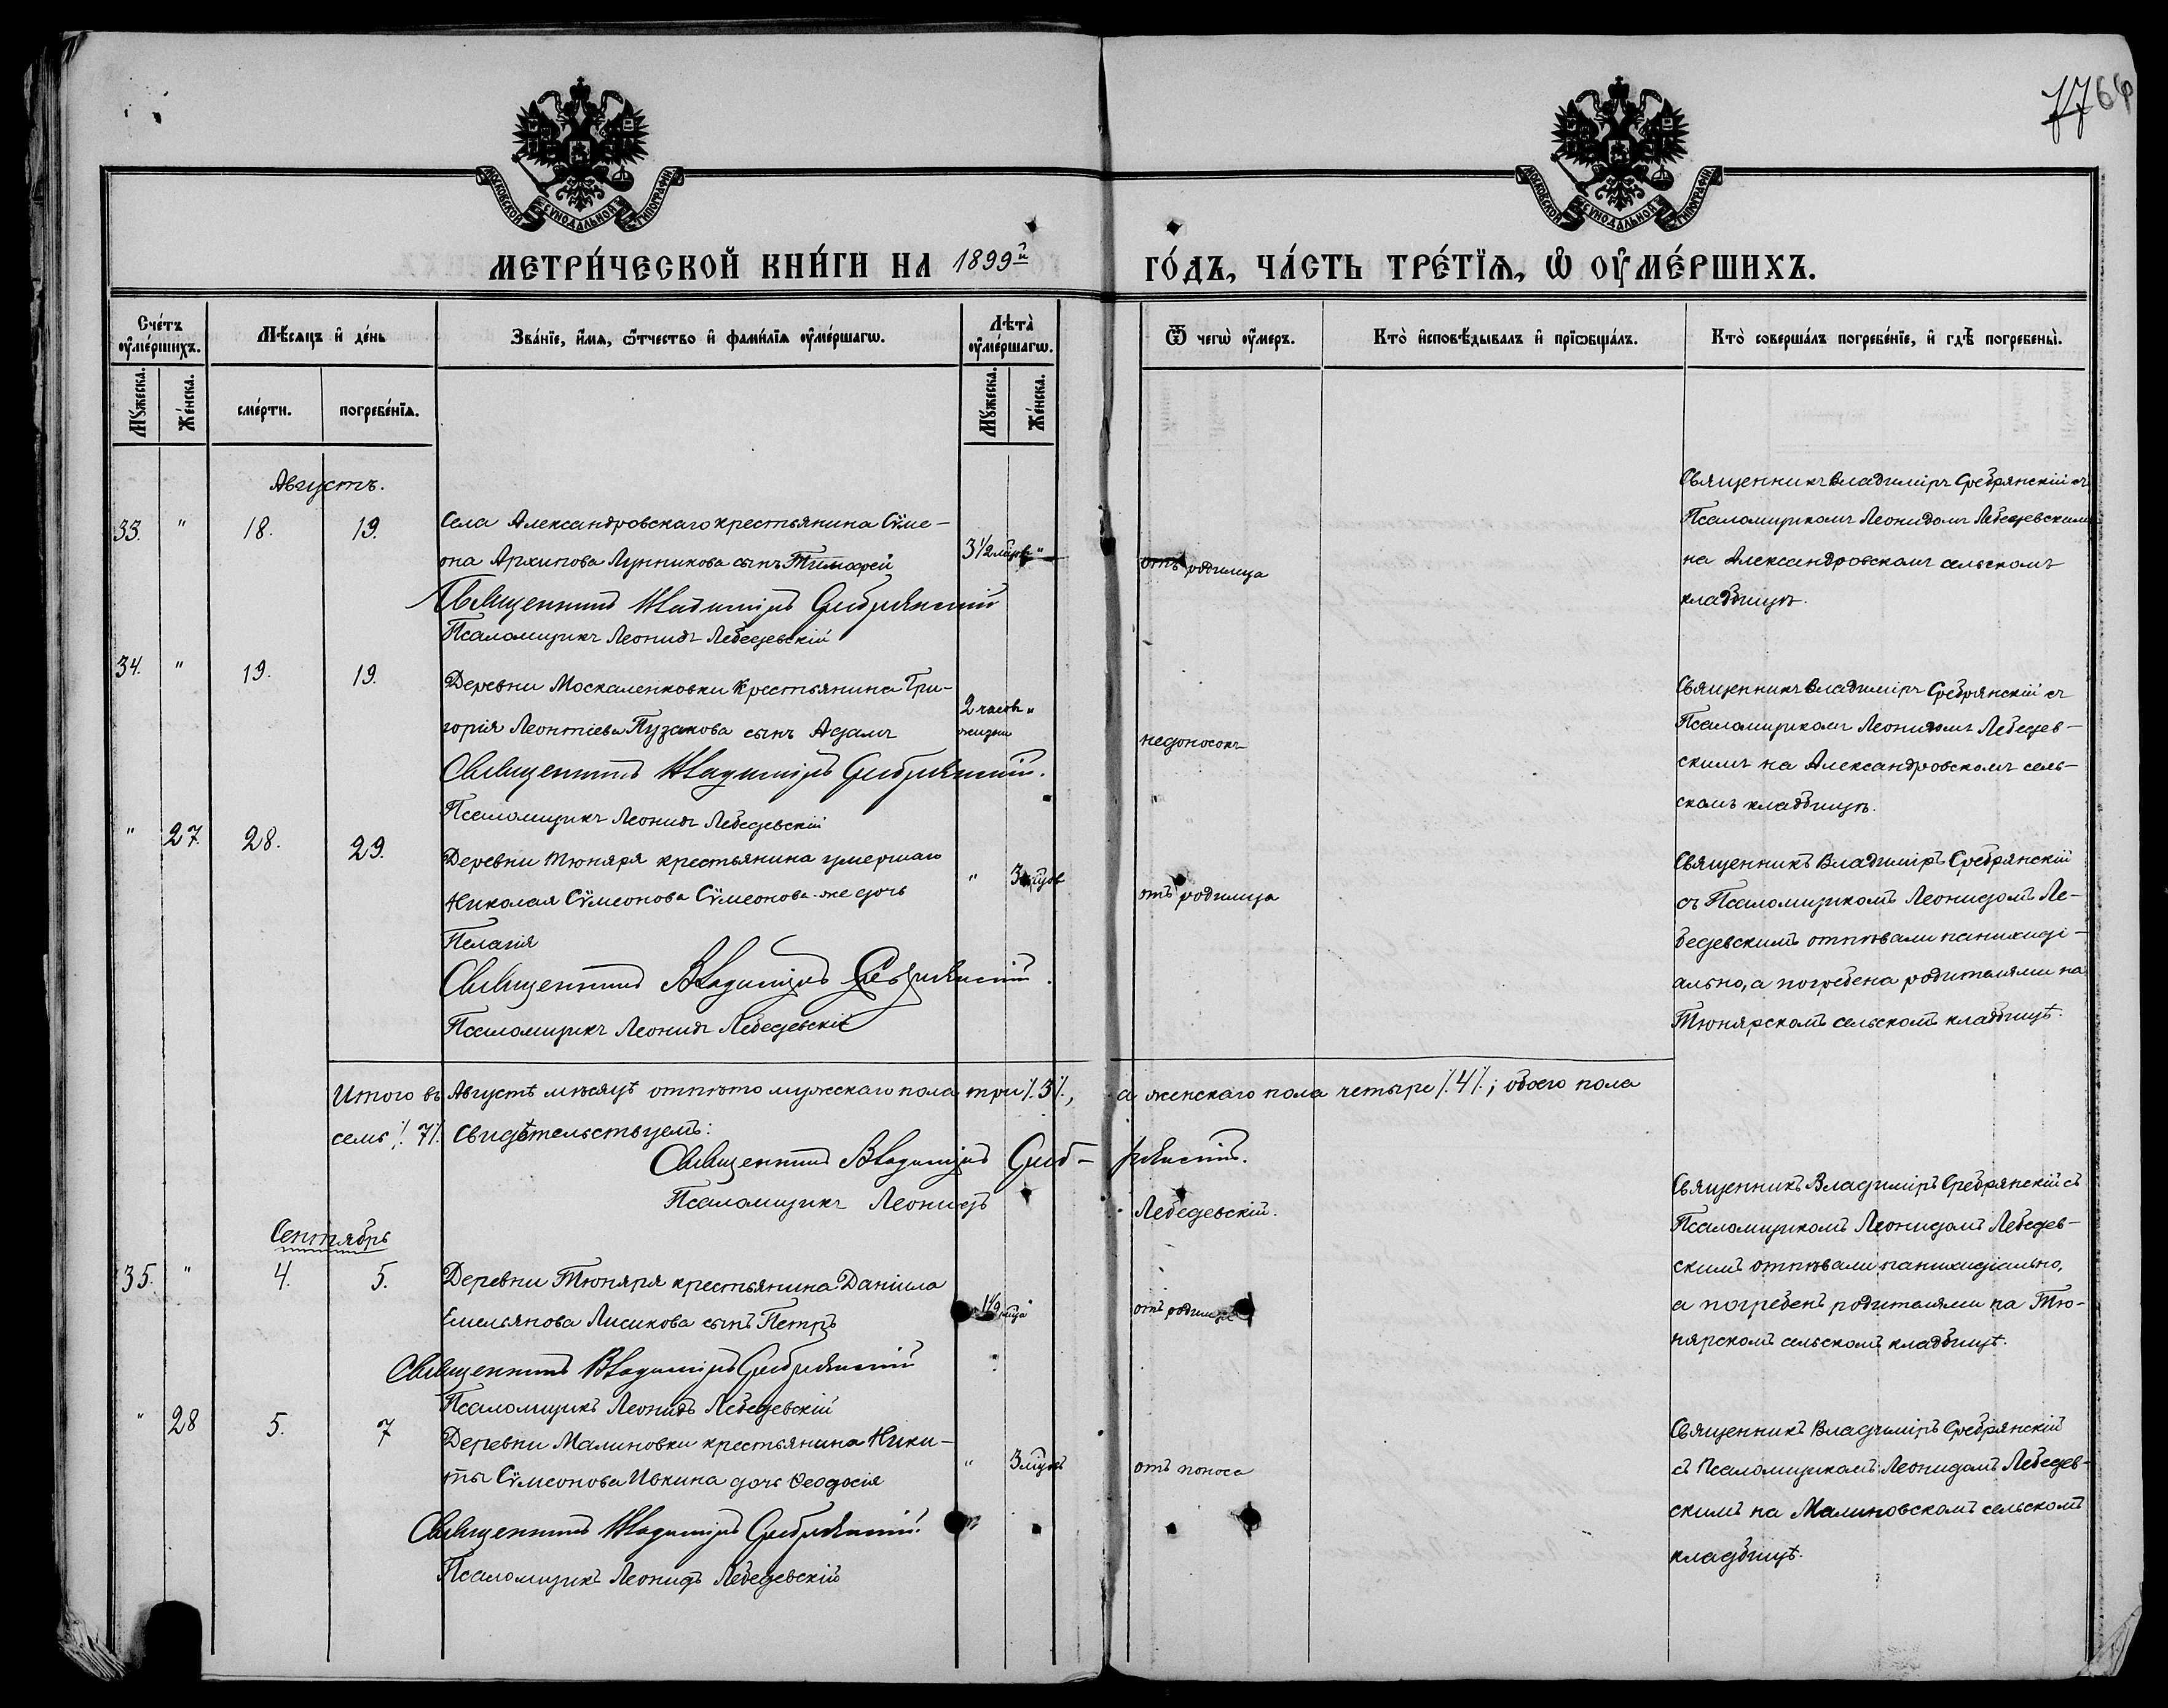 7764
МОСКОВСКОЙ СѴНОДАЛЬНОЙ ТИПОГРАФІИ
МОСКОВСКОЙ СѴНОДАЛЬНОЙ ТИПОГРАФІИ
МЕТРИ́ЧЕСКОЙ КНИ́ГИ НА 1899й ГО́ДЪ, ЧА́СТЬ ТРЕ́ТІѦ, Ѡ҆ ОУ҆МЕ́РШИХЪ.
Счетъ оу҆ме́ршихъ.
Мѣ́сяцъ и҆ де́нь
Зва́нїе, и҆́мя, ѻ҆́тчество и҆ фами́лїя оу҆ме́ршагѡ.
Лѣта̀ оу҆ме́ршагѡ.
Ѿ чегѡ̀ оу҆́меръ.
Кто̀ и҆сповѣ́дывалъ и҆ прїѡбща́лъ.
Кто̀ соверша́лъ погребе́нїе, и҆ гдѣ̀ погребены̀.
Мꙋ́жеска. Же́нска.
сме́рти. погребе́нїѧ.
Мꙋ́жеска. Же́нска.
Августъ.
33. " 18. 19.
Села Александровскаго крестьянина Сѵме-
она Архипова Лунникова сынъ Тимофей
Священникъ Владиміръ Сребрянскій
Псаломщикъ Леонидъ Лебедевскій
3 1/2 мѣсяц "
отъ родимца
Священникъ Владиміръ Сребрянскій съ
Псаломщикомъ Леонидомъ Лебедевскимъ
на Александровскомъ сельскомъ
кладбищѣ.
34. " 19. 19.
Деревни Москаленковки крестьянина Гри-
горія Леонтіева Пузакова сынъ Адамъ
Священникъ Владиміръ Сребрянскій.
Псаломщикъ Леонидъ Лебедевскій
2 часов "
жизни
недоносокъ
Священникъ Владиміръ Сребрянскій съ
Псаломщикомъ Леонидомъ Лебедев-
скимъ на Александровскомъ сель-
скомъ кладбищѣ.
" 27. 28. 29.
Деревни Тюняря крестьянина умершаго
Николая Сѵмеонова Сѵмеонова-же дочь
Пелагія
Священникъ Владиміръ Сребрянскій.
Псаломщикъ Леонидъ Лебедевскій
" 3 мѣсяцов
отъ родимца
Священникъ Владиміръ Сребрянскій
съ Псаломщикомъ Леонидомъ Ле-
бедевскимъ отпѣвали панихиді-
ально, а погребена родителями на
Тюнярскомъ сельскомъ кладбищѣ.
Итого въ Августѣ мѣсяцѣ отпѣто мужскаго пола три /.3/., а женскаго пола четыре /.4/.; обоего пола
семь /.7/. Свидѣтельствуемъ:
Священникъ Владиміръ Среб-рянскій.
Псаломщикъ Леонидъ Лебедевскій.
Сентябрь
35. " 4. 5.
Деревни Тюняря крестьянина Даніила
Емельянова Лисикова сынъ Петръ
Священникъ Владиміръ Сребрянскій
Псаломщикъ Леонидъ Лебедевскій
1 1/2 мѣсяца "
отъ родимца
Священникъ Владиміръ Сребрянскій съ
Псаломщикомъ Леонидомъ Лебедев-
скимъ отпѣвали панихидіально,
а погребенъ родителями на Тю-
нярскомъ сельскомъ кладбищѣ.
" 28 5. 7
Деревни Малиновки крестьянина Ники-
ты Сѵмеонова Ивкина дочь Ѳеодосія
Священникъ Владиміръ Сребрянскій.
Псаломщикъ Леонидъ Лебедевскій
" 3 мѣсяцовъ
отъ поноса
Священникъ Владиміръ Сребрянскій
съ Псаломщикомъ Леонидомъ Лебедев-
скимъ на Малиновскомъ сельскомъ
кладбищѣ.